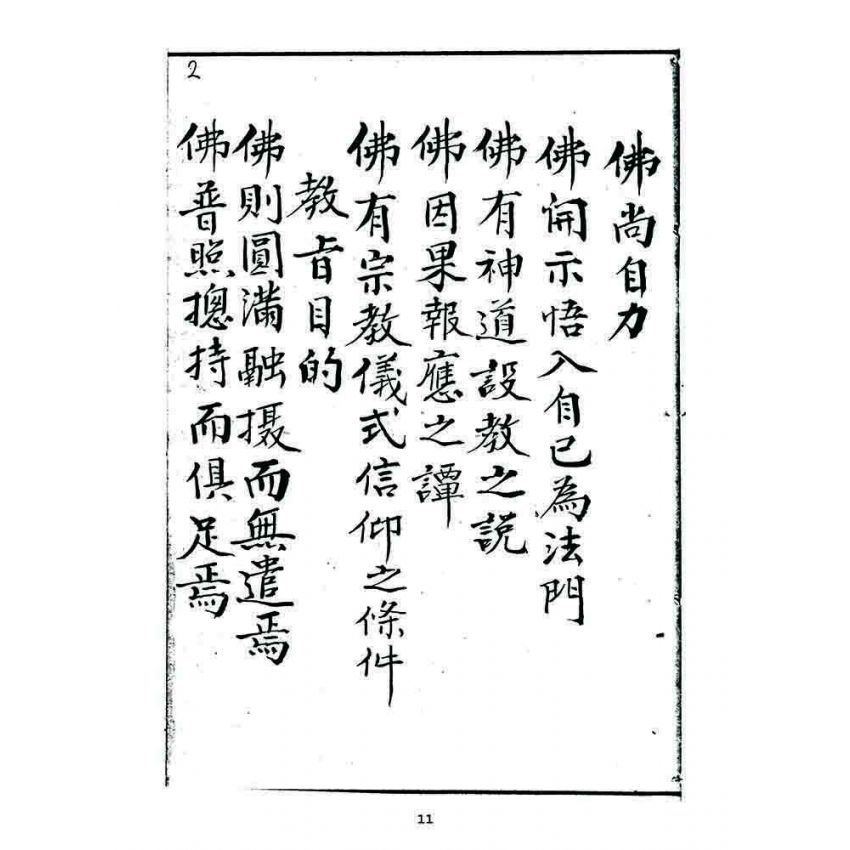 2
佛尚自力
佛開示悟入自己為法門
佛有神道設教之說
佛因果報應之譚
佛有宗教儀式信仰之條件
教旨目的
佛則圓滿融摄而無遺焉
佛普照摠持而俱足焉
11